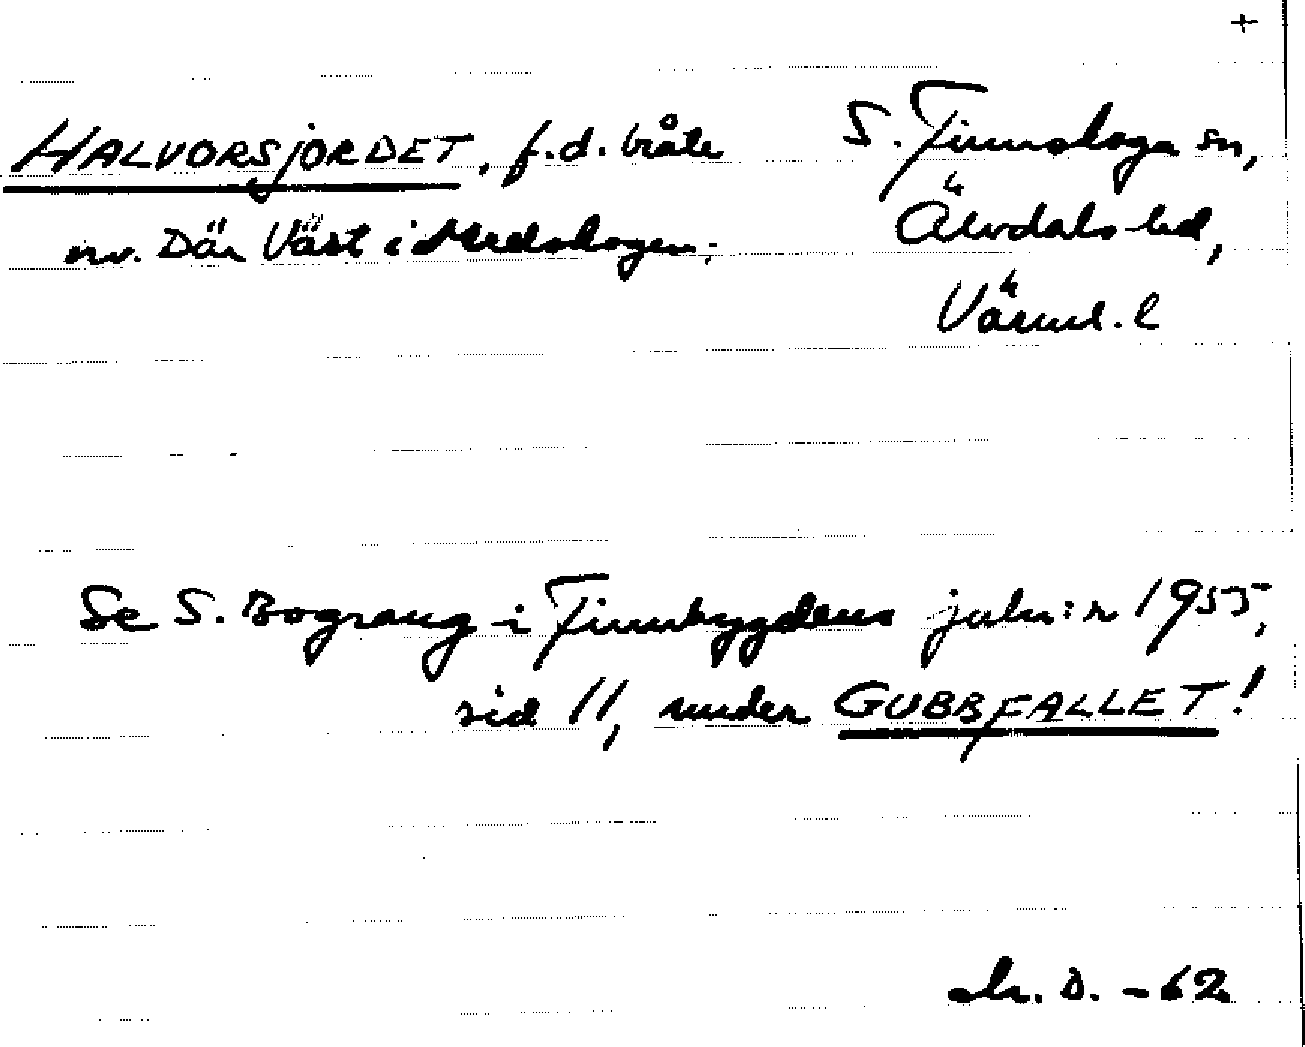 +
HALVORSJORDET, f.d. bråte
nv. Där Väst i Medskogen;
S. Finnskoga sn,
Älvdals hd,
Värml. l
Se S. Bograng i Finnbygdens juln:r 1955,
sid 11, under GUBBFALLET!
D. -62